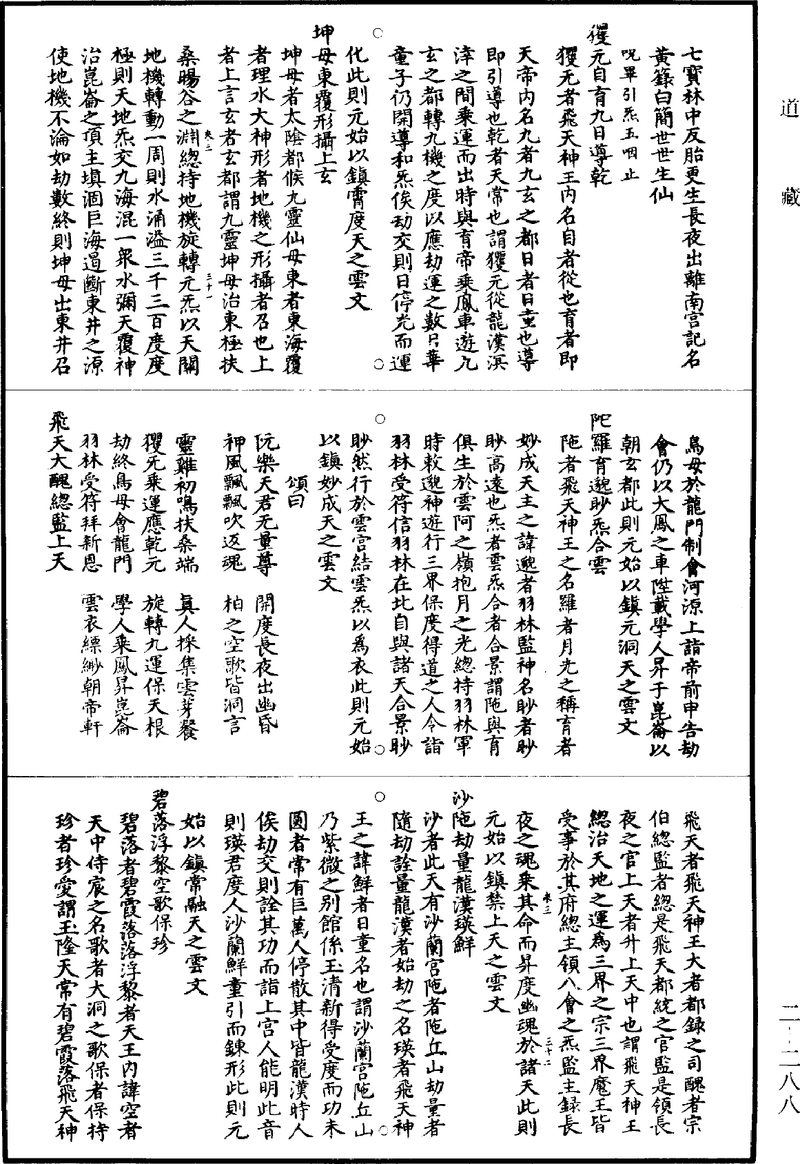 道藏
七寶林中反胎更生長夜出離南宮記名
黃籙白簡世世生仙
呪畢引炁五咽止
玃元自育九日導乾
玃无者飛天神王內名自者從也育者即
天帝內名九者九玄之都日者日童也導
即引導也乾者天常也謂玃元從龍漢溟
涬之間乘運而出時與育帝乘鳳車遊九
玄之都轉九機之度以應劫運之數只華
童子仍開導和炁俟劫交則日停光而運
化此則元始以鎮霄度天之雲文
坤母東覆形攝上玄
坤母者太陰都候九靈仙母東者東海覆
者理水大神形者地機之形攝者召也上
者上言玄者玄都謂九靈坤母治東極扶
桑暘谷之淵總持地機旋轉元炁以天關
地機轉動一周則水涌溢三千三百度度
極則天地炁交九海混一眾水彌天覆神
治崑崙之頂主填涸巨海遏斷東井之源
使地機不淪如劫數終則坤母出東井召
鳥母於龍門制會河源上詣帝前申告劫
會仍以大鳳之車陞載學人昇于崑崙以
朝玄都此則元始以鎮元洞天之雲文
陀羅育邈眇炁合雲
陁者飛天神王之名羅者月光之稱育者
妙成天主之諱邈者羽林監神名眇者眇
眇高遠也炁者雲炁合者合景謂陁與育
俱生於雲阿之嶺抱月之光總持羽林軍
時敕邈神遊行三界保度得道之人令詣
羽林受符信羽林在北自與諸天合景眇
眇然行於雲宮結雲炁以爲衣此則元始
以鎮妙成天之雲文
頌曰
阮樂天君无量尊 開度長夜出幽昏
神風飄飄吹返魂 柏之空歌皆洞言
靈雞初鳴扶桑端 真人採集雲芽餐
玃无乘運應乾元 旋轉九運保天根
劫終鳥母會龍門 學人乘鳳昇崑崙
羽林受符拜新恩 雲衣縹緲朝帝軒
飛天大醜總監上天
飛天者飛天神王大者都錄之司醜者宗
伯總監者總是飛天都統之官監是領長
夜之官上天者升上天中也謂飛天神王
總治天地之運為三界之宗三界魔王皆
受事於其府總主領八會之炁監主録長
夜之魂乘其命而昇度幽魂於諸天此則
元始以鎮禁上天之雲文
沙陁劫量龍漢瑛鮮
沙者此天有沙蘭宮陁者陁丘山劫量者
隨劫詮量龍漢者始劫之名瑛者飛天神
王之諱鮮者日童名也謂沙蘭宮陁丘山
乃紫微之別館係玉清新得受度而功未
圓者常有巨萬人停散其中皆龍漢時人
俟劫交則詮其功而詣上宮人能明此音
則瑛君度人沙蘭鮮童引而鍊形此則元
始以鎮常融天之雲文
碧落浮黎空歌保珍
碧落者碧霞落落浮黎者天王內諱空者
天中侍宸之名歌者大洞之歌保者保持
珍者珍愛謂玉隆天常有碧霞落飛天神
二‐二八八